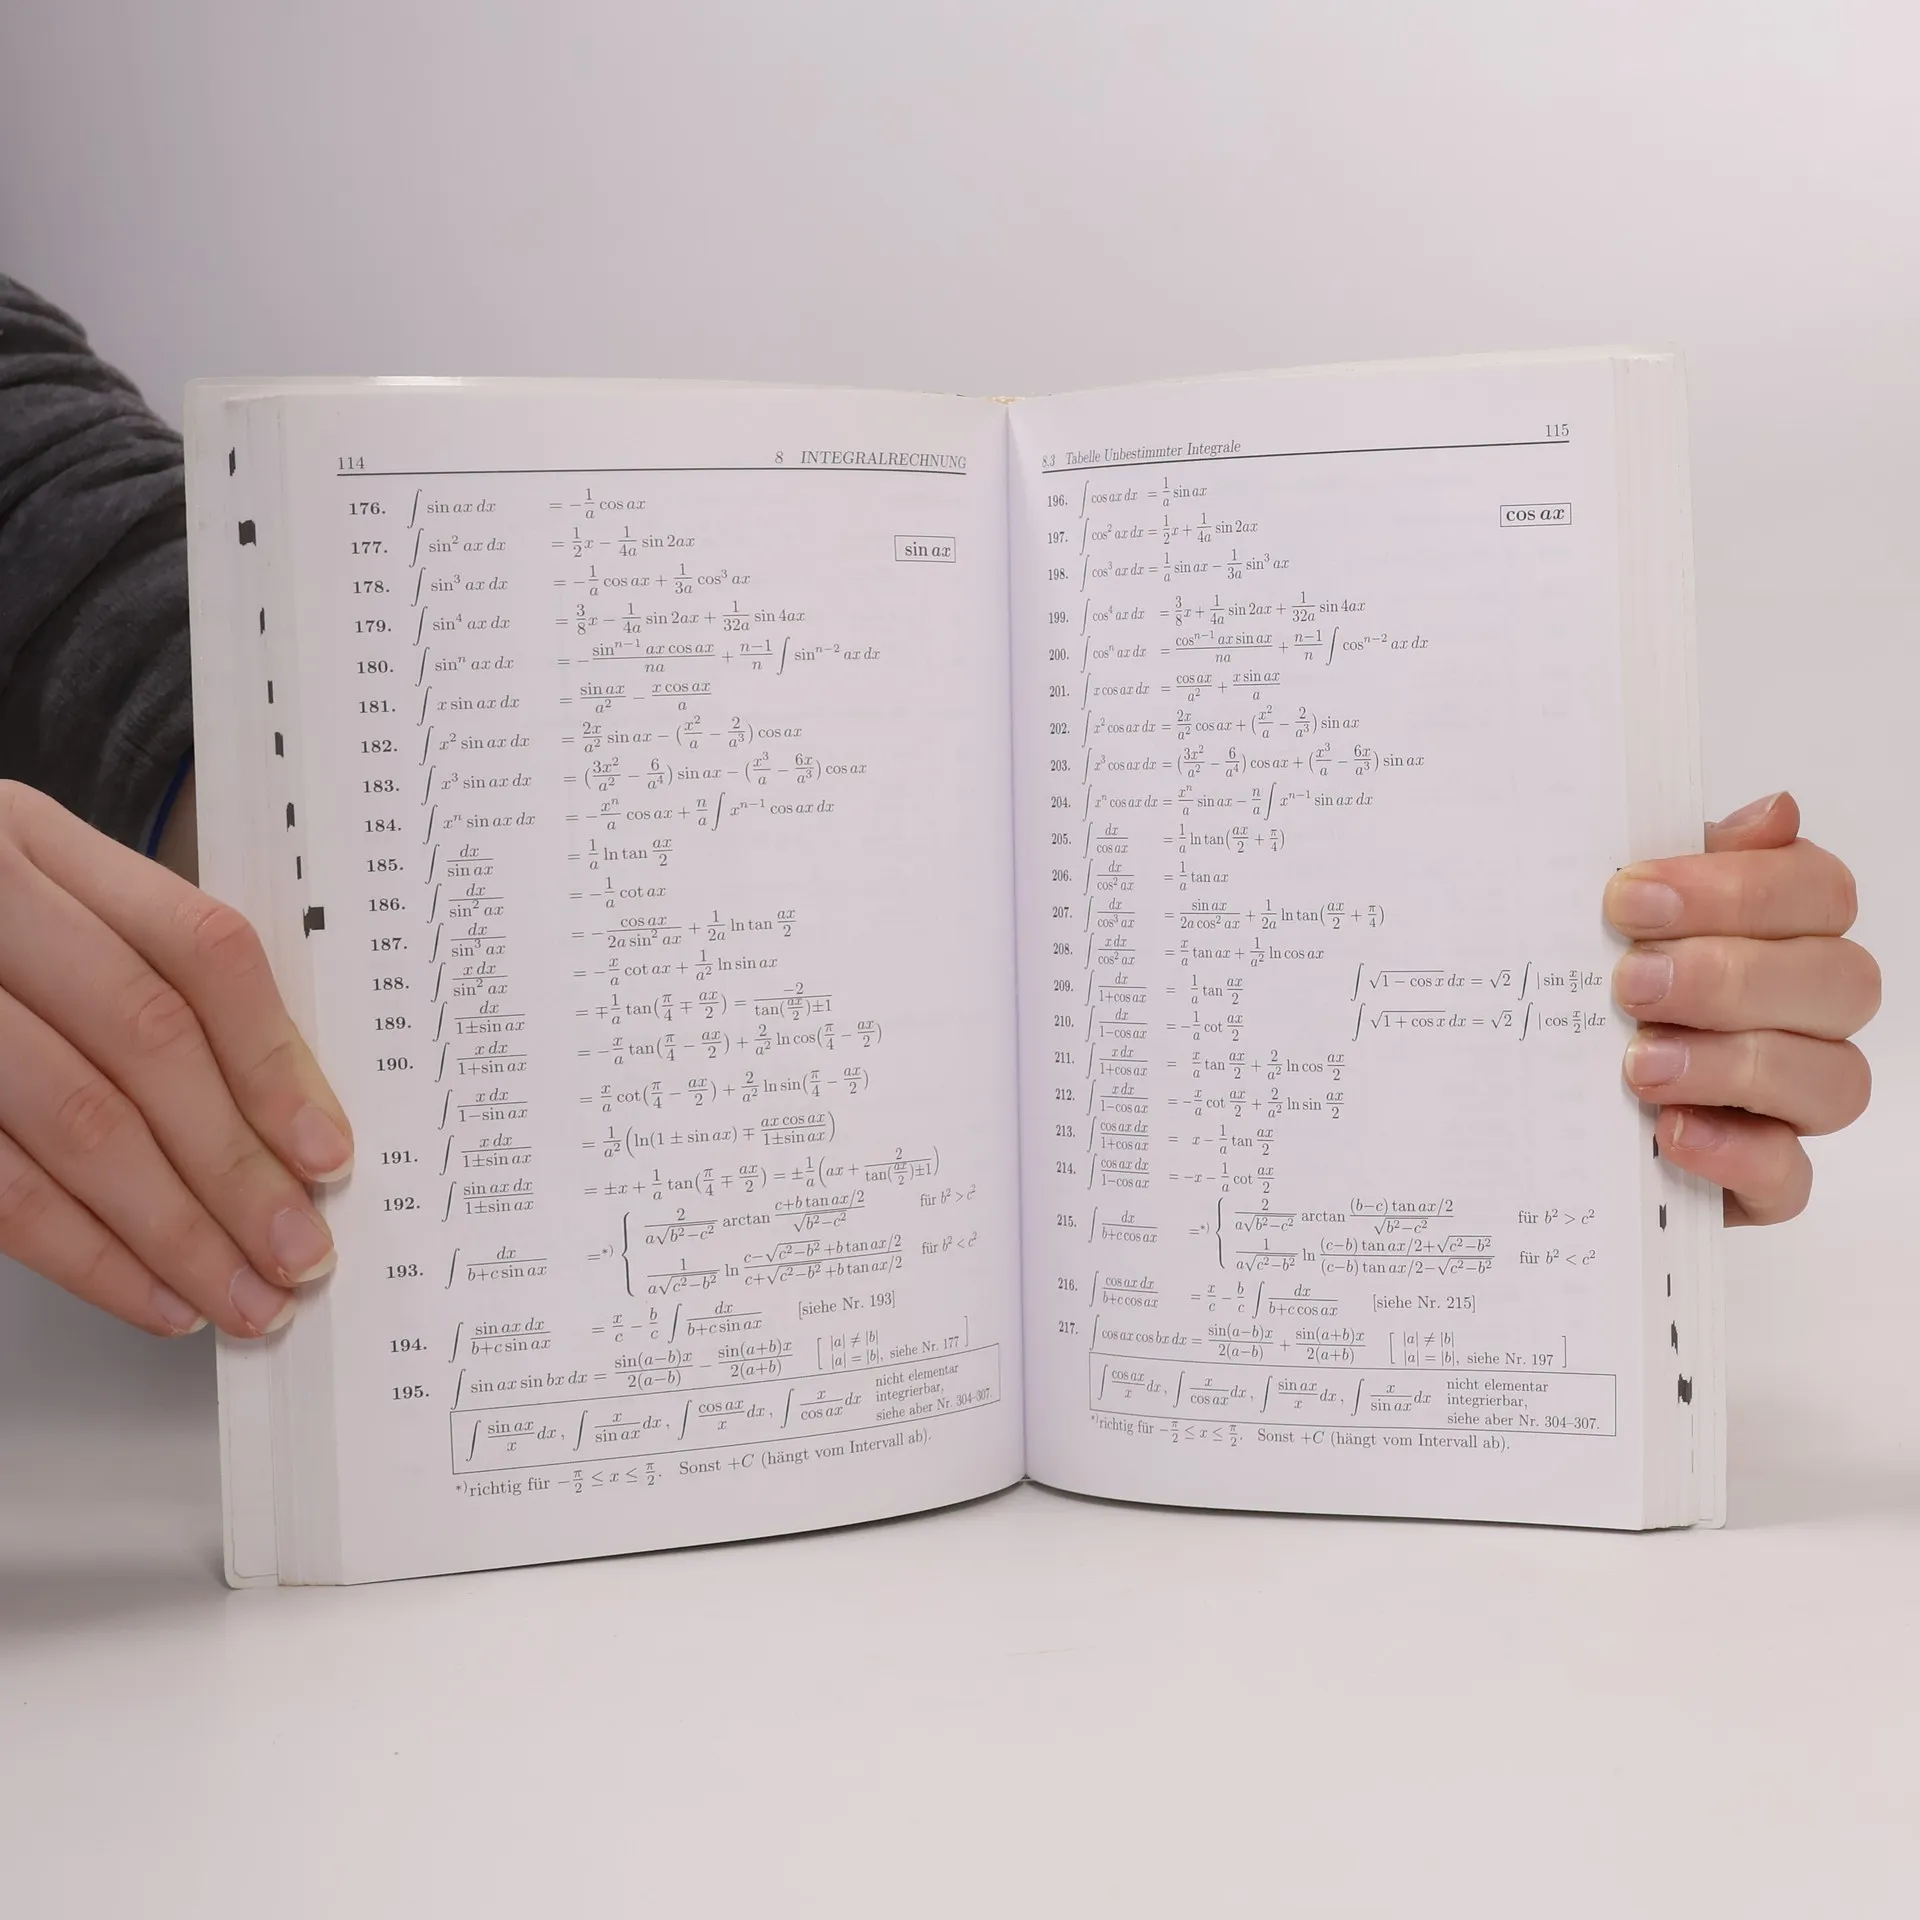 114 8 INTEGRALRECHNUNG
176. ∫ sin ax dx = −(1/a) cos ax
sin ax
177. ∫ sin² ax dx = (1/2)x − (1/4a) sin 2ax
178. ∫ sin³ ax dx = −(1/a) cos ax + (1/3a) cos³ ax
179. ∫ sin⁴ ax dx = (3/8)x − (1/4a) sin 2ax + (1/32a) sin 4ax
180. ∫ sinⁿ ax dx = −(sinⁿ⁻¹ ax cos ax)/(na) + ((n−1)/n) ∫ sinⁿ⁻² ax dx
181. ∫ x sin ax dx = (sin ax)/a² − (x cos ax)/a
182. ∫ x² sin ax dx = (2x/a²) sin ax − (x²/a − 2/a³) cos ax
183. ∫ x³ sin ax dx = (3x²/a² − 6/a⁴) sin ax − (x³/a − 6x/a³) cos ax
184. ∫ xⁿ sin ax dx = −(xⁿ/a) cos ax + (n/a) ∫ xⁿ⁻¹ cos ax dx
185. ∫ dx/(sin ax) = (1/a) ln tan (ax/2)
186. ∫ dx/(sin² ax) = −(1/a) cot ax
187. ∫ dx/(sin³ ax) = −(cos ax)/(2a sin² ax) + (1/2a) ln tan (ax/2)
188. ∫ x dx/(sin² ax) = −(x/a) cot ax + (1/a²) ln sin ax
189. ∫ dx/(1±sin ax) = ∓(1/a) tan(π/4 ∓ ax/2) = −2/(tan(ax/2)±1)
190. ∫ x dx/(1+sin ax) = −(x/a) tan(π/4 − ax/2) + (2/a²) ln cos(π/4 − ax/2)
∫ x dx/(1−sin ax) = (x/a) cot(π/4 − ax/2) + (2/a²) ln sin(π/4 − ax/2)
191. ∫ x dx/(1±sin ax) = (1/a²)(ln(1 ± sin ax) ∓ (ax cos ax)/(1±sin ax))
192. ∫ sin ax dx/(1±sin ax) = ±x + (1/a) tan(π/4 ∓ ax/2) = ±(1/a)(ax + 2/(tan(ax/2)±1))
193. ∫ dx/(b+c sin ax) =*) { (2/(a√(b²−c²))) arctan (c+b tan ax/2)/√(b²−c²) für b² > c²
(1/(a√(c²−b²))) ln (c−√(c²−b²)+b tan ax/2)/(c+√(c²−b²)+b tan ax/2) für b² < c²
194. ∫ sin ax dx/(b+c sin ax) = x/c − (b/c) ∫ dx/(b+c sin ax) [siehe Nr. 193]
195. ∫ sin ax sin bx dx = sin(a−b)x/(2(a−b)) − sin(a+b)x/(2(a+b)) [ |a| ≠ |b|
|a| = |b|, siehe Nr. 177 ]
∫ (sin ax)/x dx, ∫ x/(sin ax) dx, ∫ (cos ax)/x dx, ∫ x/(cos ax) dx nicht elementar
integrierbar,
siehe aber Nr. 304–307.
*)richtig für −π/2 ≤ x ≤ π/2. Sonst +C (hängt vom Intervall ab).
8.3 Tabelle Unbestimmter Integrale 115
196. ∫ cos ax dx = (1/a) sin ax
cos ax
197. ∫ cos² ax dx = (1/2)x + (1/4a) sin 2ax
198. ∫ cos³ ax dx = (1/a) sin ax − (1/3a) sin³ ax
199. ∫ cos⁴ ax dx = (3/8)x + (1/4a) sin 2ax + (1/32a) sin 4ax
200. ∫ cosⁿ ax dx = (cosⁿ⁻¹ ax sin ax)/(na) + ((n−1)/n) ∫ cosⁿ⁻² ax dx
201. ∫ x cos ax dx = (cos ax)/a² + (x sin ax)/a
202. ∫ x² cos ax dx = (2x/a²) cos ax + (x²/a − 2/a³) sin ax
203. ∫ x³ cos ax dx = (3x²/a² − 6/a⁴) cos ax + (x³/a − 6x/a³) sin ax
204. ∫ xⁿ cos ax dx = (xⁿ/a) sin ax − (n/a) ∫ xⁿ⁻¹ sin ax dx
205. ∫ dx/(cos ax) = (1/a) ln tan(ax/2 + π/4)
206. ∫ dx/(cos² ax) = (1/a) tan ax
207. ∫ dx/(cos³ ax) = (sin ax)/(2a cos² ax) + (1/2a) ln tan(ax/2 + π/4)
208. ∫ x dx/(cos² ax) = (x/a) tan ax + (1/a²) ln cos ax
209. ∫ dx/(1+cos ax) = (1/a) tan (ax/2) ∫ √(1 − cos x) dx = √2 ∫ | sin (x/2)|dx
210. ∫ dx/(1−cos ax) = −(1/a) cot (ax/2) ∫ √(1 + cos x) dx = √2 ∫ | cos (x/2)|dx
211. ∫ x dx/(1+cos ax) = (x/a) tan (ax/2) + (2/a²) ln cos (ax/2)
212. ∫ x dx/(1−cos ax) = −(x/a) cot (ax/2) + (2/a²) ln sin (ax/2)
213. ∫ cos ax dx/(1+cos ax) = x − (1/a) tan (ax/2)
214. ∫ cos ax dx/(1−cos ax) = −x − (1/a) cot (ax/2)
215. ∫ dx/(b+c cos ax) =*) { (2/(a√(b²−c²))) arctan ((b−c) tan ax/2)/√(b²−c²) für b² > c²
(1/(a√(c²−b²))) ln ((c−b) tan ax/2+√(c²−b²))/((c−b) tan ax/2−√(c²−b²)) für b² < c²
216. ∫ cos ax dx/(b+c cos ax) = x/c − (b/c) ∫ dx/(b+c cos ax) [siehe Nr. 215]
217. ∫ cos ax cos bx dx = sin(a−b)x/(2(a−b)) + sin(a+b)x/(2(a+b)) [ |a| ≠ |b|
|a| = |b|, siehe Nr. 197 ]
∫ (cos ax)/x dx, ∫ x/(cos ax) dx, ∫ (sin ax)/x dx, ∫ x/(sin ax) dx nicht elementar
integrierbar,
siehe aber Nr. 304–307.
*)richtig für −π/2 ≤ x ≤ π/2. Sonst +C (hängt vom Intervall ab).